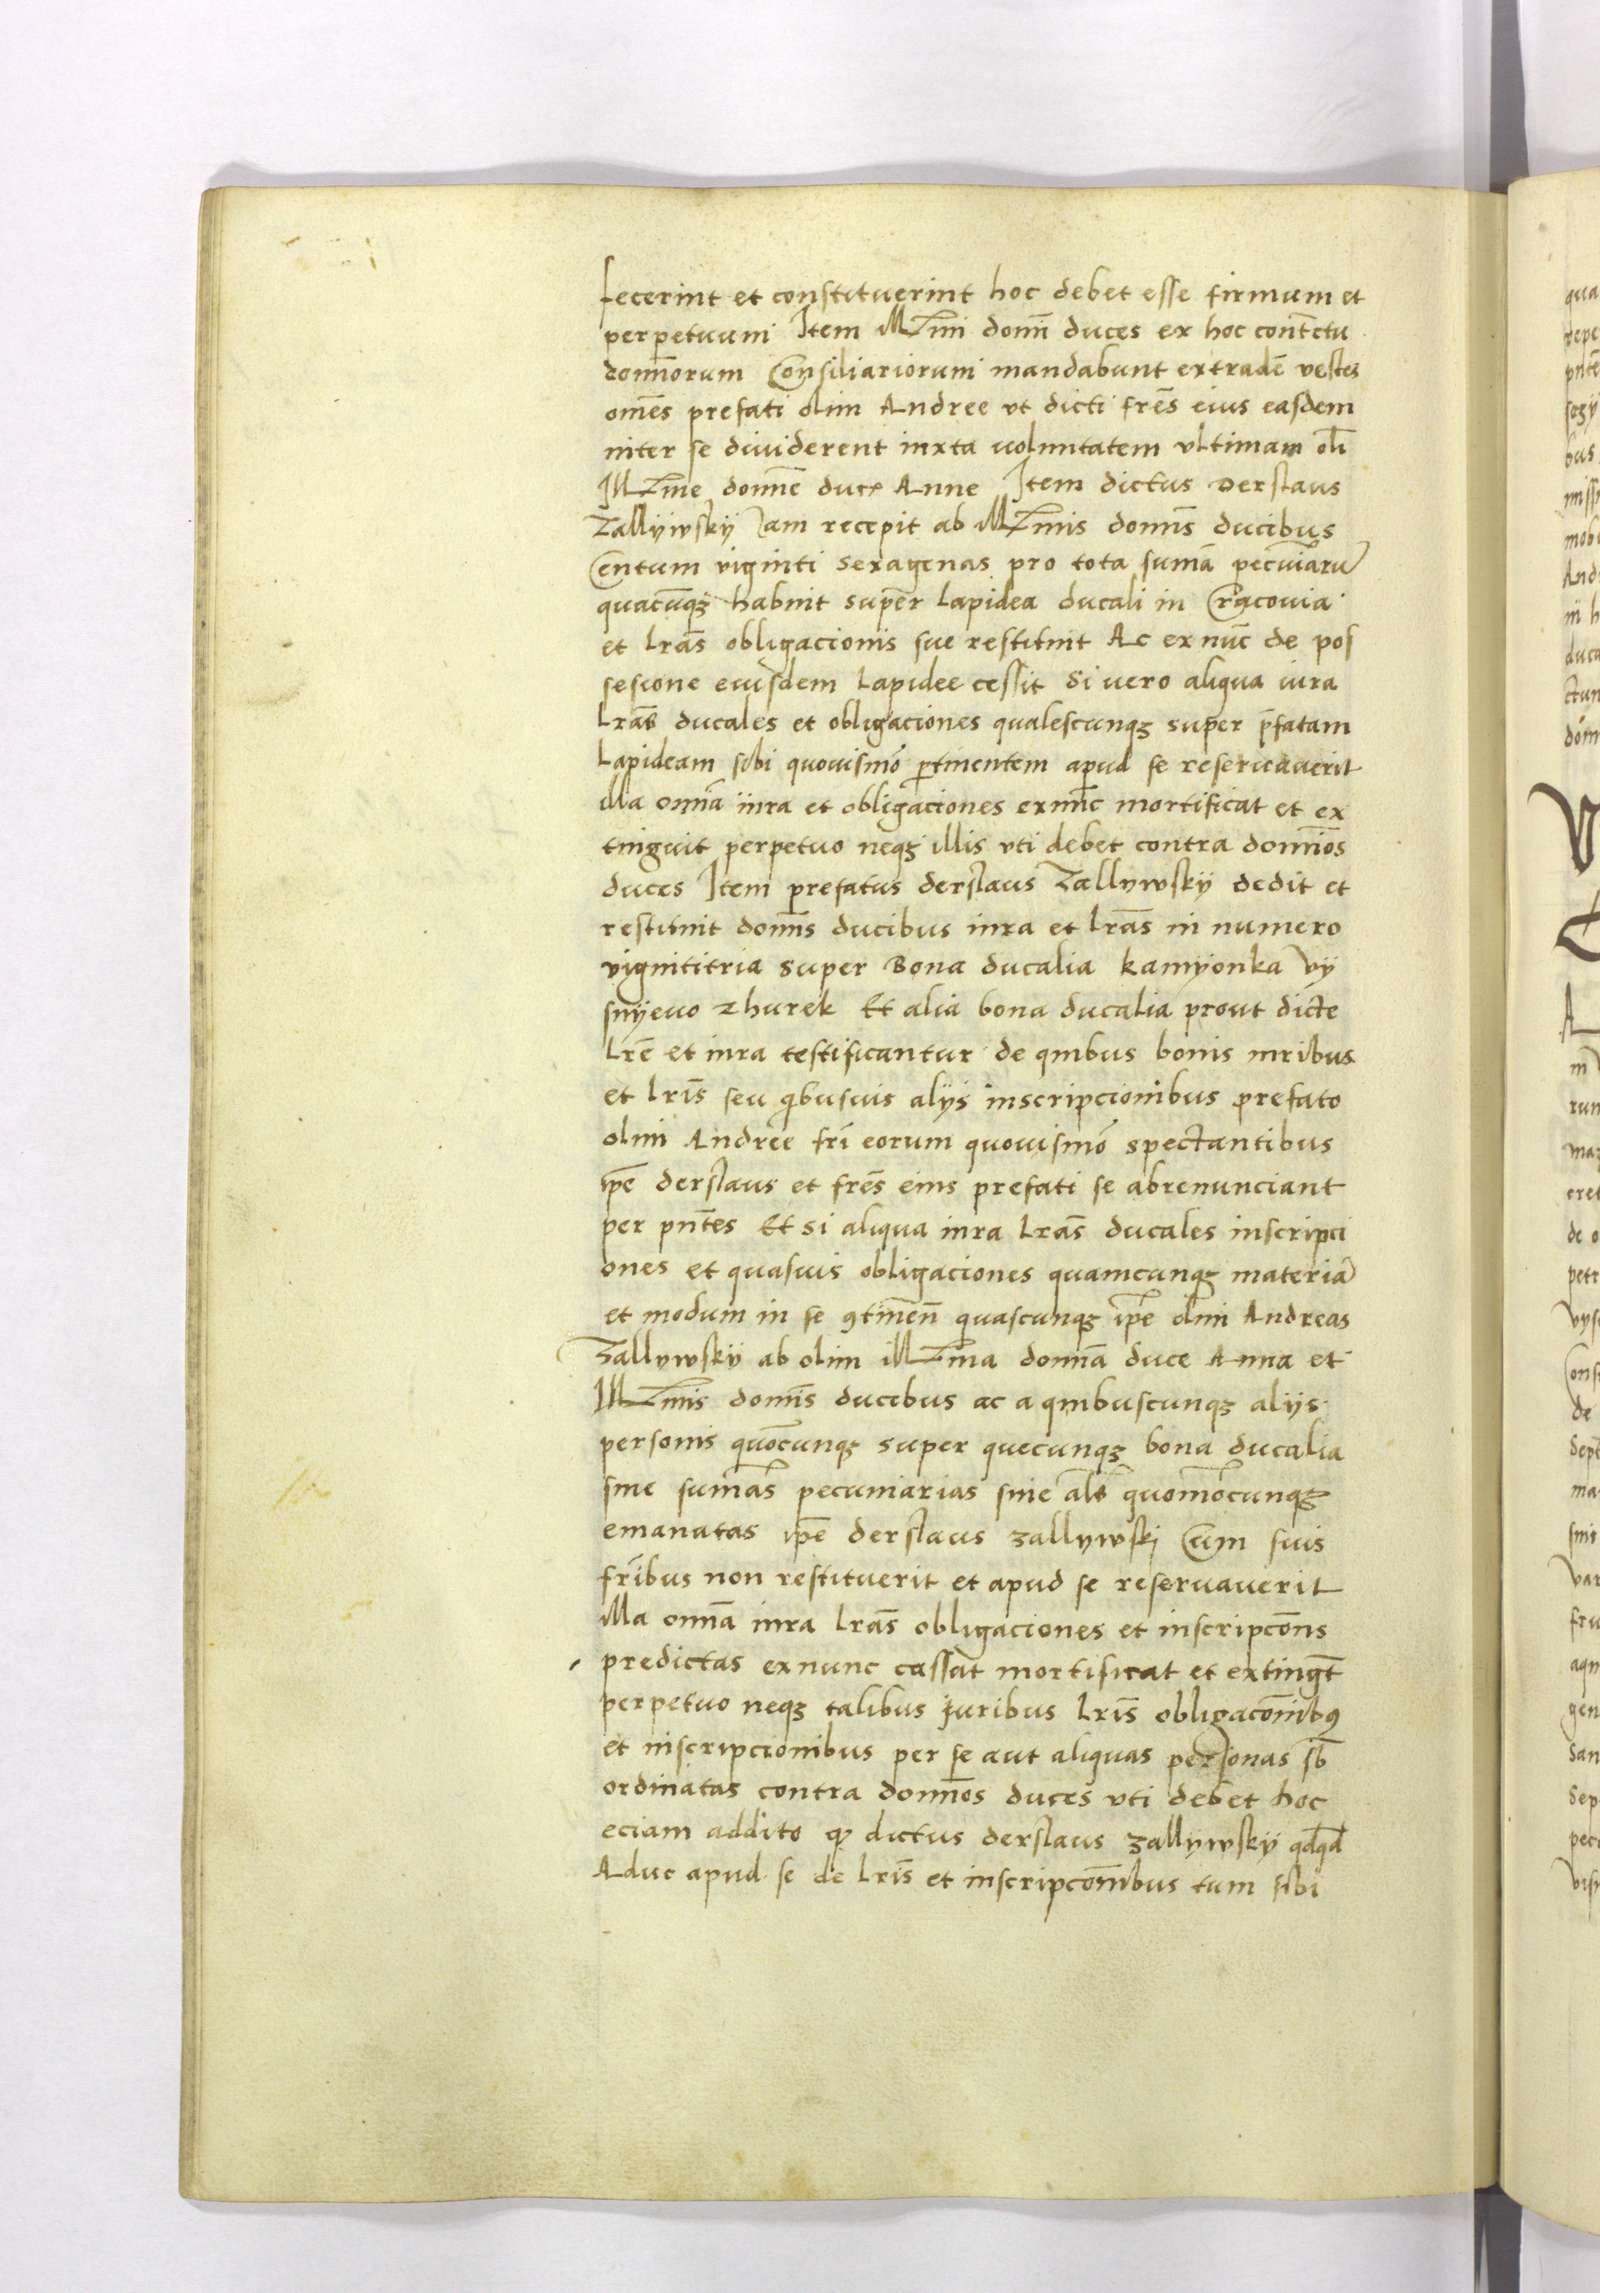 fecerint et constituerint hoc debet esse firmum et
perpetuum Item Illmi domi duces ex hoc contctu
domnorum Consiliariorum mandabunt extrade vestes
omes prefati olim Andree vt dicti fres eius easdem
inter se diuiderent iuxta voluntatem vltimam oli
Illme domne duce Anne Item dictus Derslaus
Zallÿwskÿ Iam recepit ab Illmis domis ducibus
Centum viginti sexagenas pro tota suma pecuniaru
quacuqz habuit super Lapidea ducali in Cracouia
et Lras obligacionis sue restituit Ac ex nuc de pos
sesione eiusdem Lapidee cessit Si vero aliqua iura
Lras ducales et obligaciones qualescunqz super pfatam
Lapideam sibi quouismo ptinentem apud se reseruauerit
illa omia iura et obligaciones exnuc mortificat et ex
tinguit perpetuo neqz illis vti debet contra domios
duces Item prefatus derslaus Zallywskÿ dedit et
restituit domis ducibus iura et Lras in numero
vigintitria super Bona ducalia kamÿonka vÿ
snÿevo zhurek Et alia bona ducalia prout dicte
Lre et iura testificantur de quibus bonis iuribus
et Lris seu qibusuis alÿs inscripcionibus prefato
olim Andree fri eorum quouismo spectantibus
ipe derslaus et fres eius prefati se abrenunciant
per pntes Et si aliqua iura Lras ducales inscripci
ones et quasuis obligaciones quamcunqz materia
et modum in se 9tinen quascunqz ipe olim Andreas
Zallywskÿ ab olim Illma domna duce Anna et
Illmis domis ducibus ac a quibuscunqz alÿs
personis quocunqz super quecunqz bona ducalia
siue sumas pecuniarias siue als quomocunqz
emanatas ipe derslaus zallywski Cum suis
fribus non restituerit et apud se reseruauerit
illa omia iura Lras obligaciones et inscripcons
predictas exnunc cassat mortificat et extingt
perpetuo neqz talibus juribus Lris obligaconib9
et inscripcionibus per se aut aliquas personas sb
ordinatas contra domnos duces vti debet hoc
eciam addito q dictus derslaus zallywskÿ qdqd
Aduc apud se de Lris et inscripconibus tum sibi